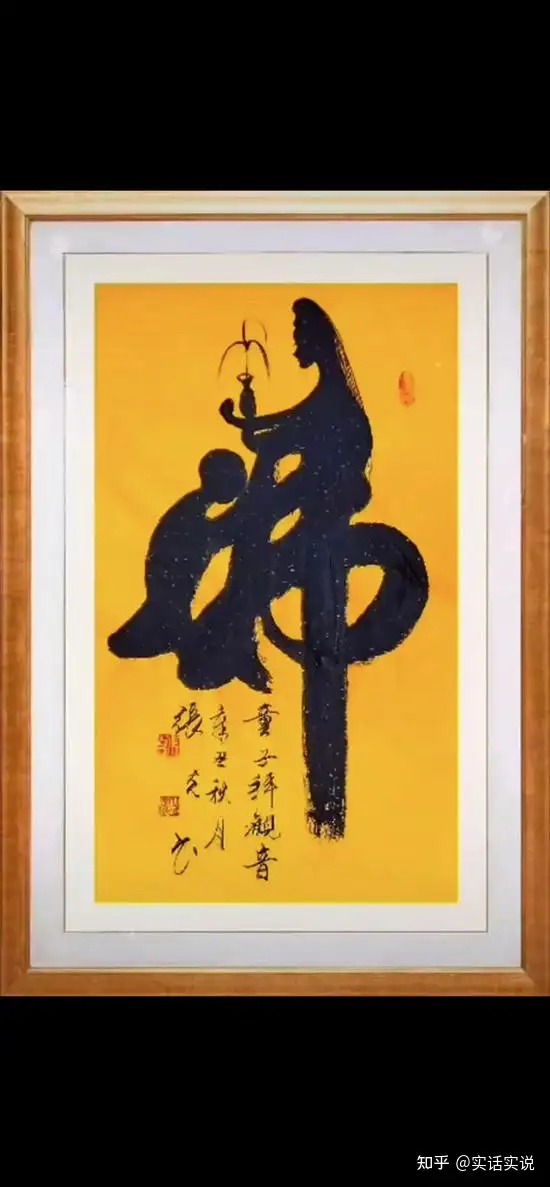 佛
童子拜觀音
辛丑秋月
張克
书
知乎 @实话实说